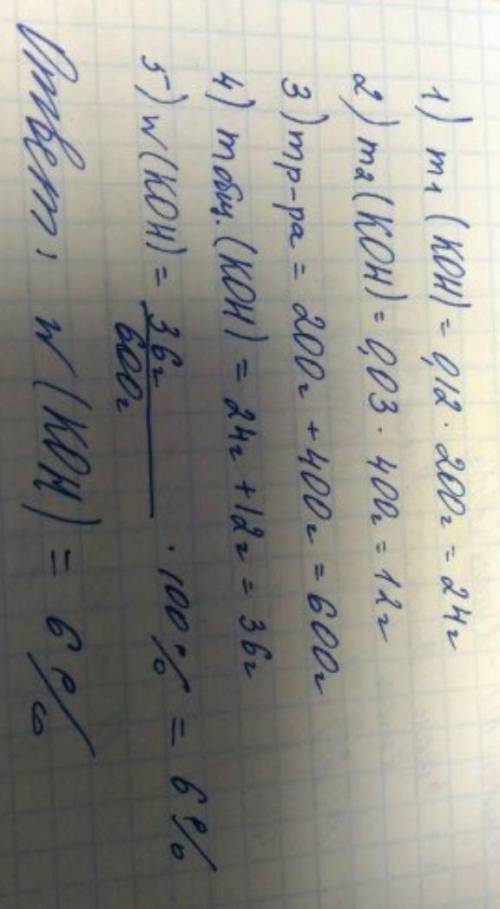 1) m₁ (KOH) = 0,12 · 200г = 24г
2) m₂ (KOH) = 0,03 · 400г = 12г
3) m р-ра = 200г + 400г = 600г
4) m общ. (KOH) = 24г + 12г = 36г
5) w (KOH) = 36г / 600г · 100% = 6%
Ответ: w (KOH) = 6%